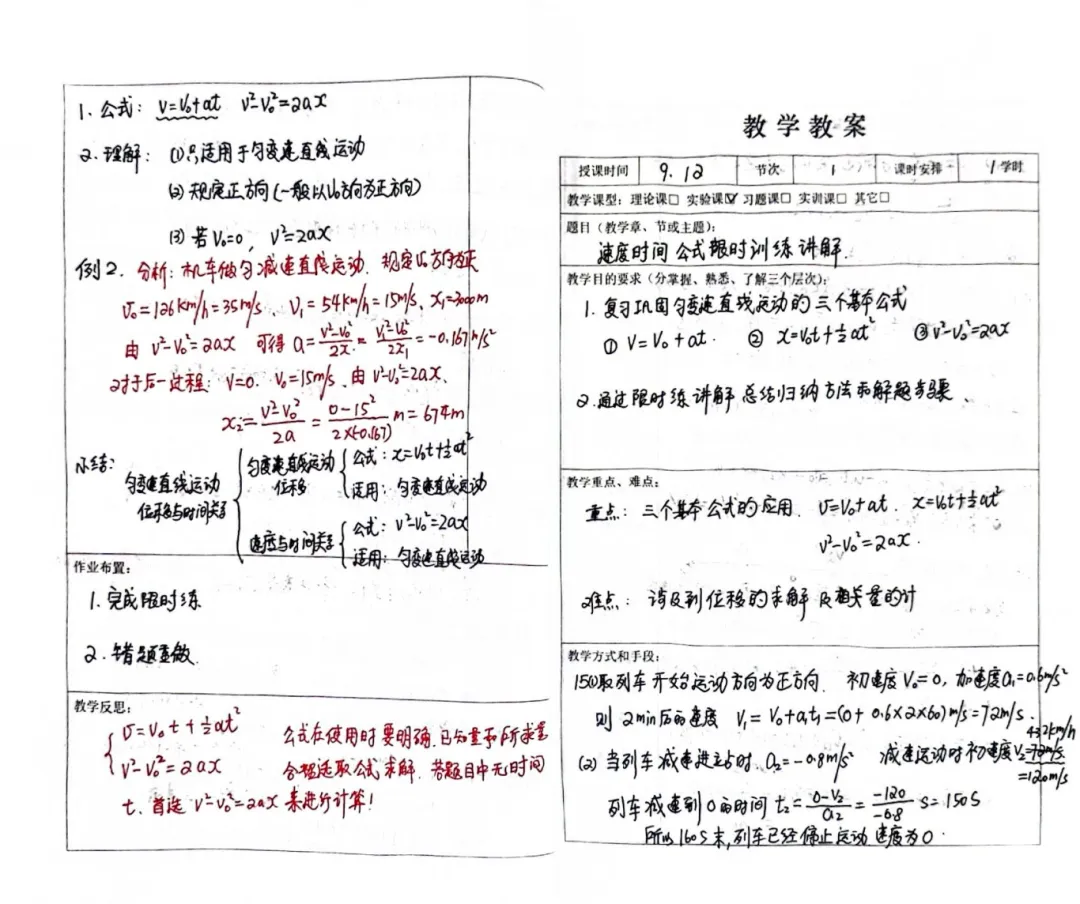 1. 公式: v=v₀+at v²-v₀²=2ax
2. 理解: (1)只适用于匀变速直线运动
(2) 规定正方向(一般以v₀方向为正方向)
(3) 若v₀=0, v²=2ax
例2. 分析: 机车做匀减速直线运动. 规定v₀方向为正
v₀=126km/h=35m/s, v₁=54km/h=15m/s, x₁=3000m
由 v²-v₀²=2ax 可得 a=(v²-v₀²)/2x=(v₁²-v₀²)/2x₁=-0.167m/s²
对于后一过程: v=0. v₀=15m/s, 由v²-v₀²=2ax,
x₂=(v²-v₀²)/2a=(0-15²)/(2×(-0.167))m=674m
小结:
匀变速直线运动
位移与时间关系
匀变速直线运动
位移
公式: x=v₀t+½at²
适用: 匀变速直线运动
速度与时间关系
公式: v²-v₀²=2ax
适用: 匀变速直线运动
作业布置:
1. 完成限时练
2. 错题重做
教学反思:
v=v₀t+½at²
v²-v₀²=2ax
公式在使用时要明确. 已知量和所求量
合理选取公式求解. 若题目中无时间
t. 首选 v²-v₀²=2ax 来进行计算!
教学教案
授课时间 9.12 节次 1 课时安排 1学时
教学课型: 理论课□ 实验课☑ 习题课□ 实训课□ 其它□
题目(教学章、节或主题):
速度时间公式限时训练讲解
教学目的要求(分掌握、熟悉、了解三个层次):
1. 复习巩固匀变速直线运动的三个基本公式
① v=v₀+at. ② x=v₀t+½at² ③ v²-v₀²=2ax
2. 通过限时练讲解总结归纳方法和解题步骤.
教学重点、难点:
重点: 三个基本公式的应用. v=v₀+at. x=v₀t+½at²
v²-v₀²=2ax.
难点: 涉及到位移的求解及相关量的计
教学方式和手段:
15(1)取列车开始运动方向为正方向. 初速度v₀=0, 加速度a₁=0.6m/s²
则 2min后的速度 v₁=v₀+a₁t₁=(0+0.6×2×60)m/s=72m/s.
432km/h
(2) 当列车减速进站时. a₂=-0.8m/s² 减速运动时初速度v₂=72m/s
=120m/s
列车减速到0的时间 t₂=(0-v₂)/a₂=(-120)/(-0.8) s=150s
所以160s末, 列车已经停止运动 速度为0.